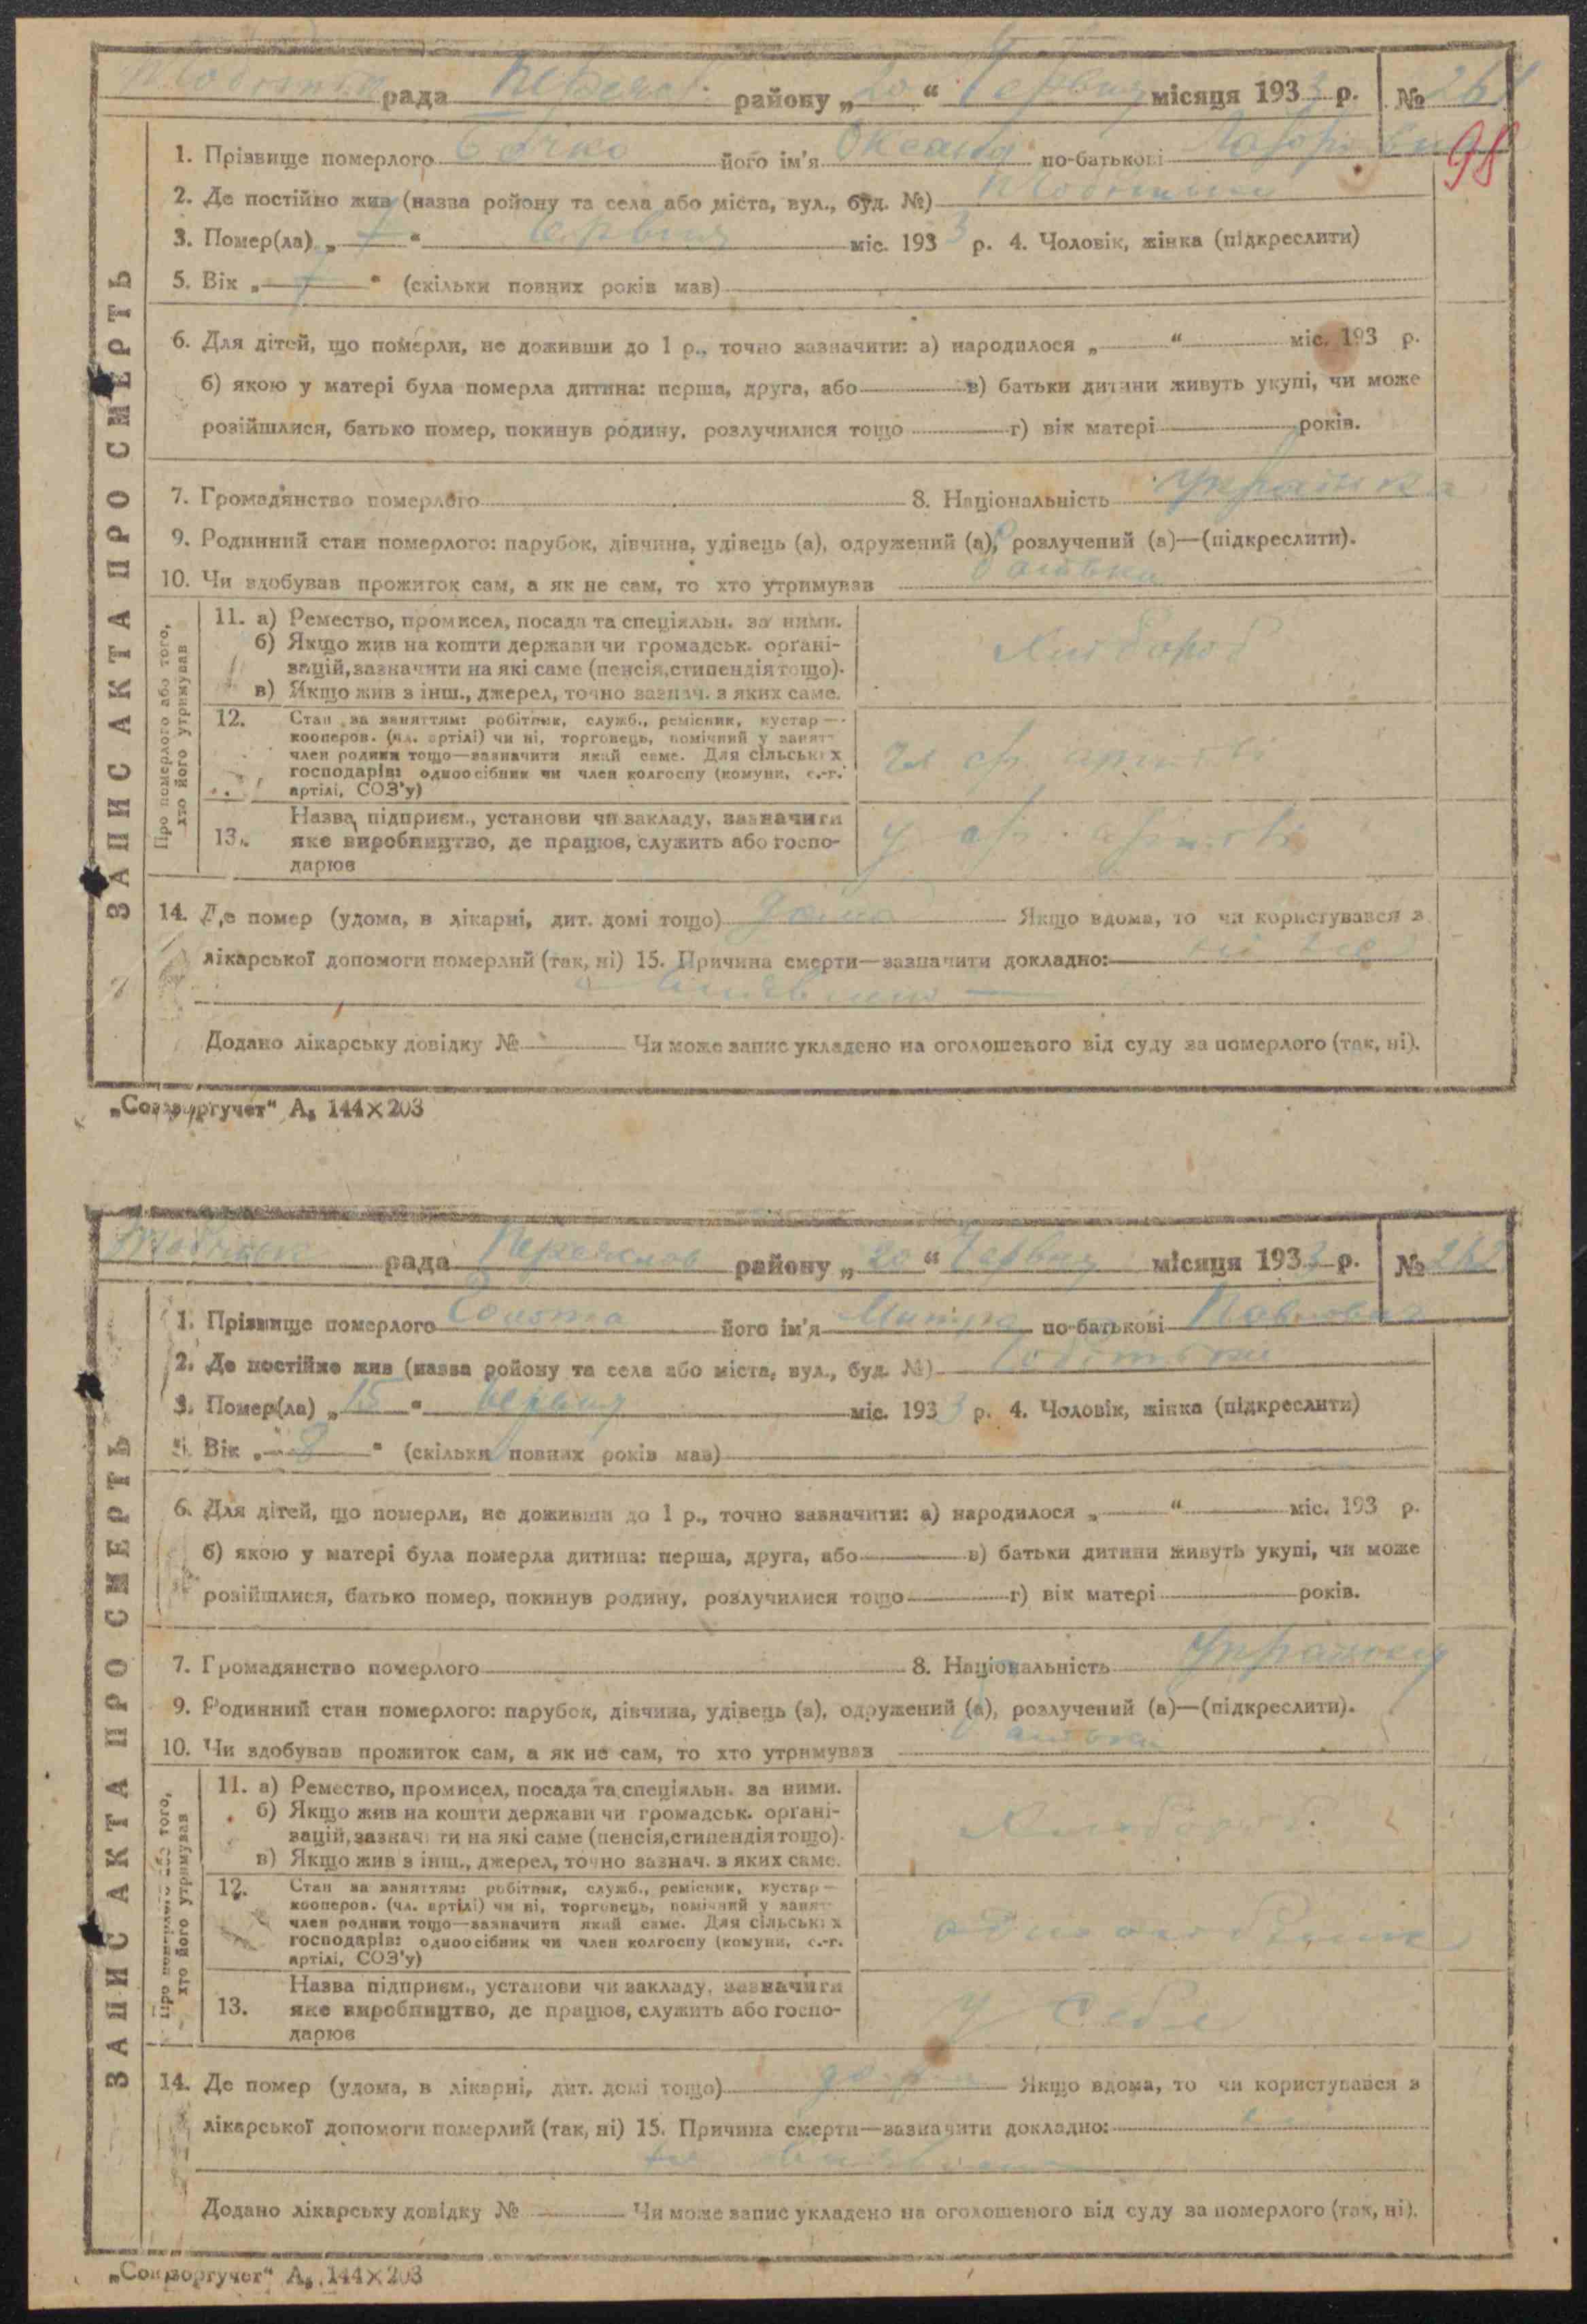 рада района „ 20 “ Червня місяця 1933 р. № 261
98
1. Прізвище померлого Бочко його ім'я Оксана по-батькові
2. Де постійно жив (назва ройону та села або міста, вул., буд. №)
3. Помер(ла) „ 7 “ Червня міс. 1933 р. 4. Чоловік, жінка (підкреслити)
5. Вік „ 7 “ (скільки повних років мав)
6. Для дітей, що померли, не доживши до 1 р., точно зазначити: а) народилося „ “ міс. 193 р.
б) якою у матері була померла дитина: перша, друга, або в) батьки дитини живуть укупі, чи може
розійшлися, батько помер, покинув родину, розлучилися тощо г) вік матері років.
7. Громадянство померлого 8. Національність Українка
9. Родинний стан померлого: парубок, дівчина, удівець (а), одружений (а), розлучений (а)—(підкреслити).
10. Чи здобував прожиток сам, а як не сам, то хто утримував батьки
ЗАПИС АКТА ПРО СМЕРТЬ
Про померлого або того, хто його утримував
11. а) Ремество, промисел, посада та спеціяльн. за ними.
б) Якщо жив на кошти держави чи громадськ. органі-
зацій, зазначити на які саме (пенсія, стипендія тощо).
в) Якщо жив з інш., джерел, точно зазнач. з яких саме.
Хлібороб
12. Стан за заняттям: робітник, служб., ремісник, кустар—
кооперов. (чл. артілі) чи ні, торговець, помічний у занят-
член родини тощо—зазначити який саме. Для сільських
господарів: одноосібник чи член колгоспу (комуни, с.-г.
артілі, СОЗ'у)
13. Назва підприєм., установи чи закладу, зазначити
яке виробництво, де працює, служить або госпо-
дарює
14. Де помер (удома, в лікарні, дит. домі тощо) дома Якщо вдома, то чи користувався з
лікарської допомоги померлий (так, ні) 15. Причина смерти—зазначити докладно:
Додано лікарську довідку № Чи може запис укладено на оголошеного від суду за померлого (так, ні).
144×203
рада района „ 20 “ Червня місяця 1933 р. № 262
1. Прізвище померлого його ім'я по-батькові Павлович
2. Де постійно жив (назва ройону та села або міста, вул., буд. №)
3. Помер(ла) „ 15 “ Червня міс. 1933 р. 4. Чоловік, жінка (підкреслити)
Вік „ 8 “ (скільки повних років мав)
6. Для дітей, що померли, не доживши до 1 р., точно зазначити: а) народилося „ “ міс. 193 р.
б) якою у матері була померла дитина: перша, друга, або в) батьки дитини живуть укупі, чи може
розійшлися, батько помер, покинув родину, розлучилися тощо г) вік матері років.
7. Громадянство померлого 8. Національність
9. Родинний стан померлого: парубок, дівчина, удівець (а), одружений (а), розлучений (а)—(підкреслити).
10. Чи здобував прожиток сам, а як не сам, то хто утримував батьки
ЗАПИС АКТА ПРО СМЕРТЬ
Про померлого або того, хто його утримував
11. а) Ремество, промисел, посада та спеціяльн. за ними.
б) Якщо жив на кошти держави чи громадськ. органі-
зацій, зазначити на які саме (пенсія, стипендія тощо).
в) Якщо жив з інш., джерел, точно зазнач. з яких саме.
Хлібороб
12. Стан за заняттям: робітник, служб., ремісник, кустар—
кооперов. (чл. артілі) чи ні, торговець, помічний у занят-
член родини тощо—зазначити який саме. Для сільських
господарів: одноосібник чи член колгоспу (комуни, с.-г.
артілі, СОЗ'у)
13. Назва підприєм., установи чи закладу, зазначити
яке виробництво, де працює, служить або госпо-
дарює
у себе
14. Де помер (удома, в лікарні, дит. домі тощо) дома Якщо вдома, то чи користувався з
лікарської допомоги померлий (так, ні) 15. Причина смерти—зазначити докладно:
Додано лікарську довідку № Чи може запис укладено на оголошеного від суду за померлого (так, ні).
144×203